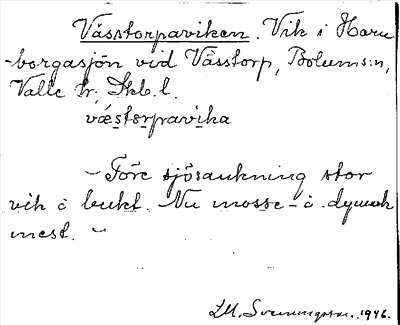 Vässtorpaviken. Vik i Horn
-borgasjön vid Vässtorp, Bolums:n,
Valle hr, Skb. l.
væstorpavika
– Före sjösänkning stor
vik å bukt. Nu mosse- å dymark
mest. –
1946.